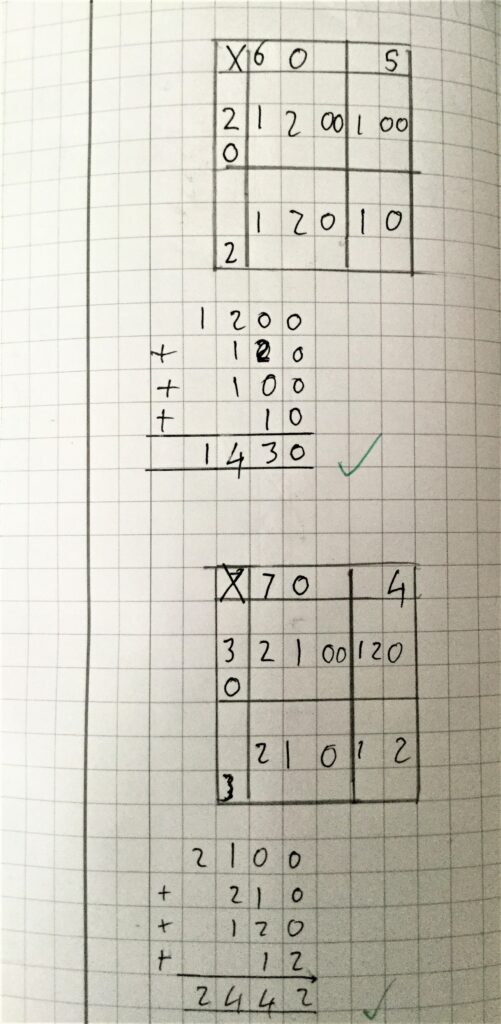 X 60 5
20 1200 100
2 120 10
1200
+ 120
+ 100
+ 10
1430
X 70 4
30 2100 120
3 210 12
2100
+ 210
+ 120
+ 12
2442